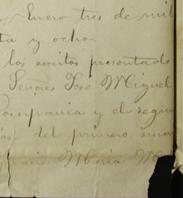 Enero tres de mil
ta y ocho.
los escritos presentado
Señores José Miguel
Compania y el segun
del primero
Maria